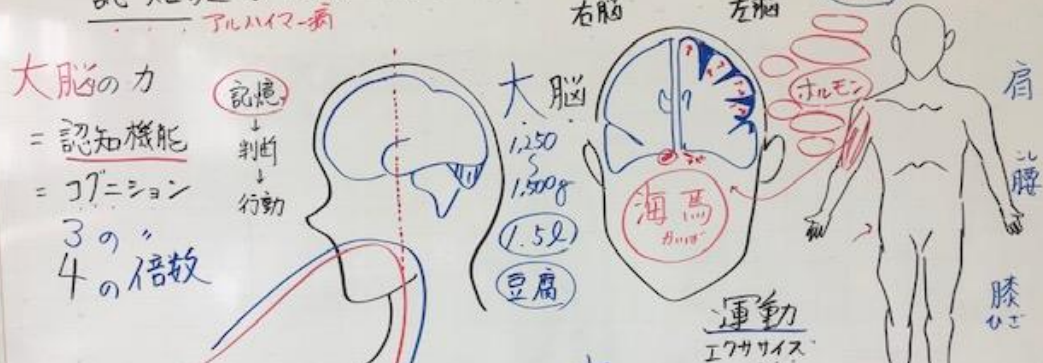 アルハイマー病
右脳
左脳
大脳の力
= 認知機能
= コグニション
3の〃
4の倍数
記憶
↓
判断
↓
行動
大脳
1,250
〜
1,500g
1.5ℓ
豆腐
海馬
かいば
運動
エクササイズ
ホルモン
肩
こし
腰
膝
ひざ